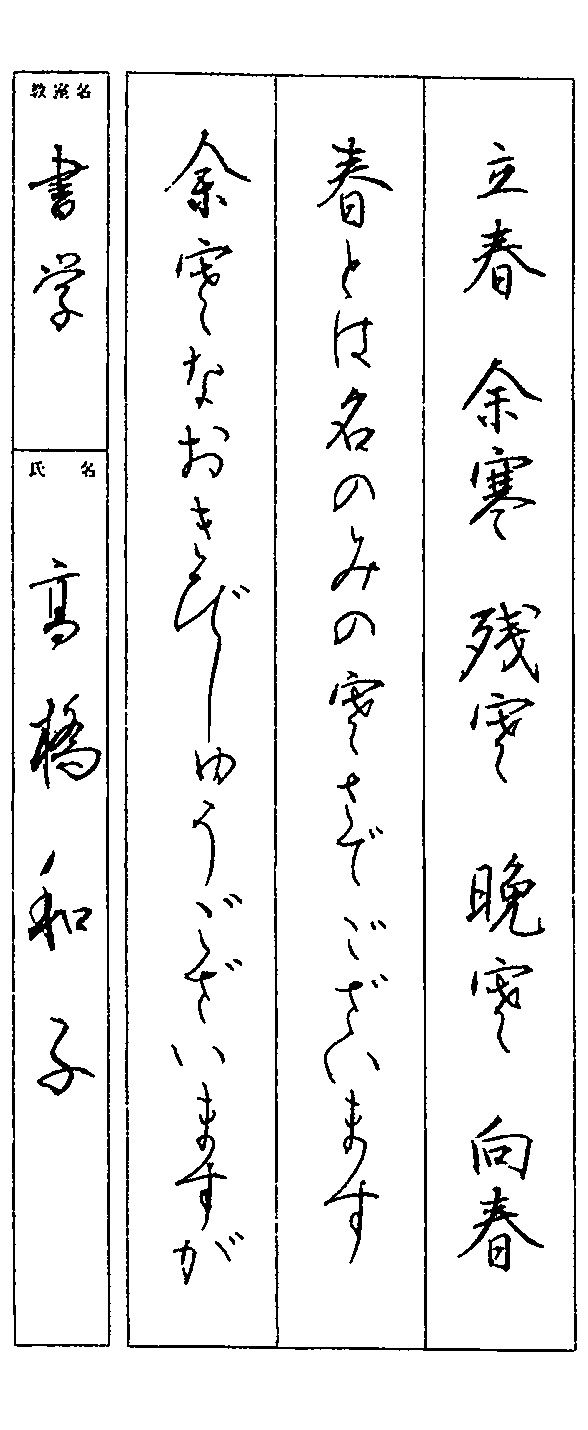 立春 余寒 残寒 晩寒 向春
春とは名のみの寒さでございます
余寒なおきびしゅうございますが
教室名
書学
氏名
高橋和子